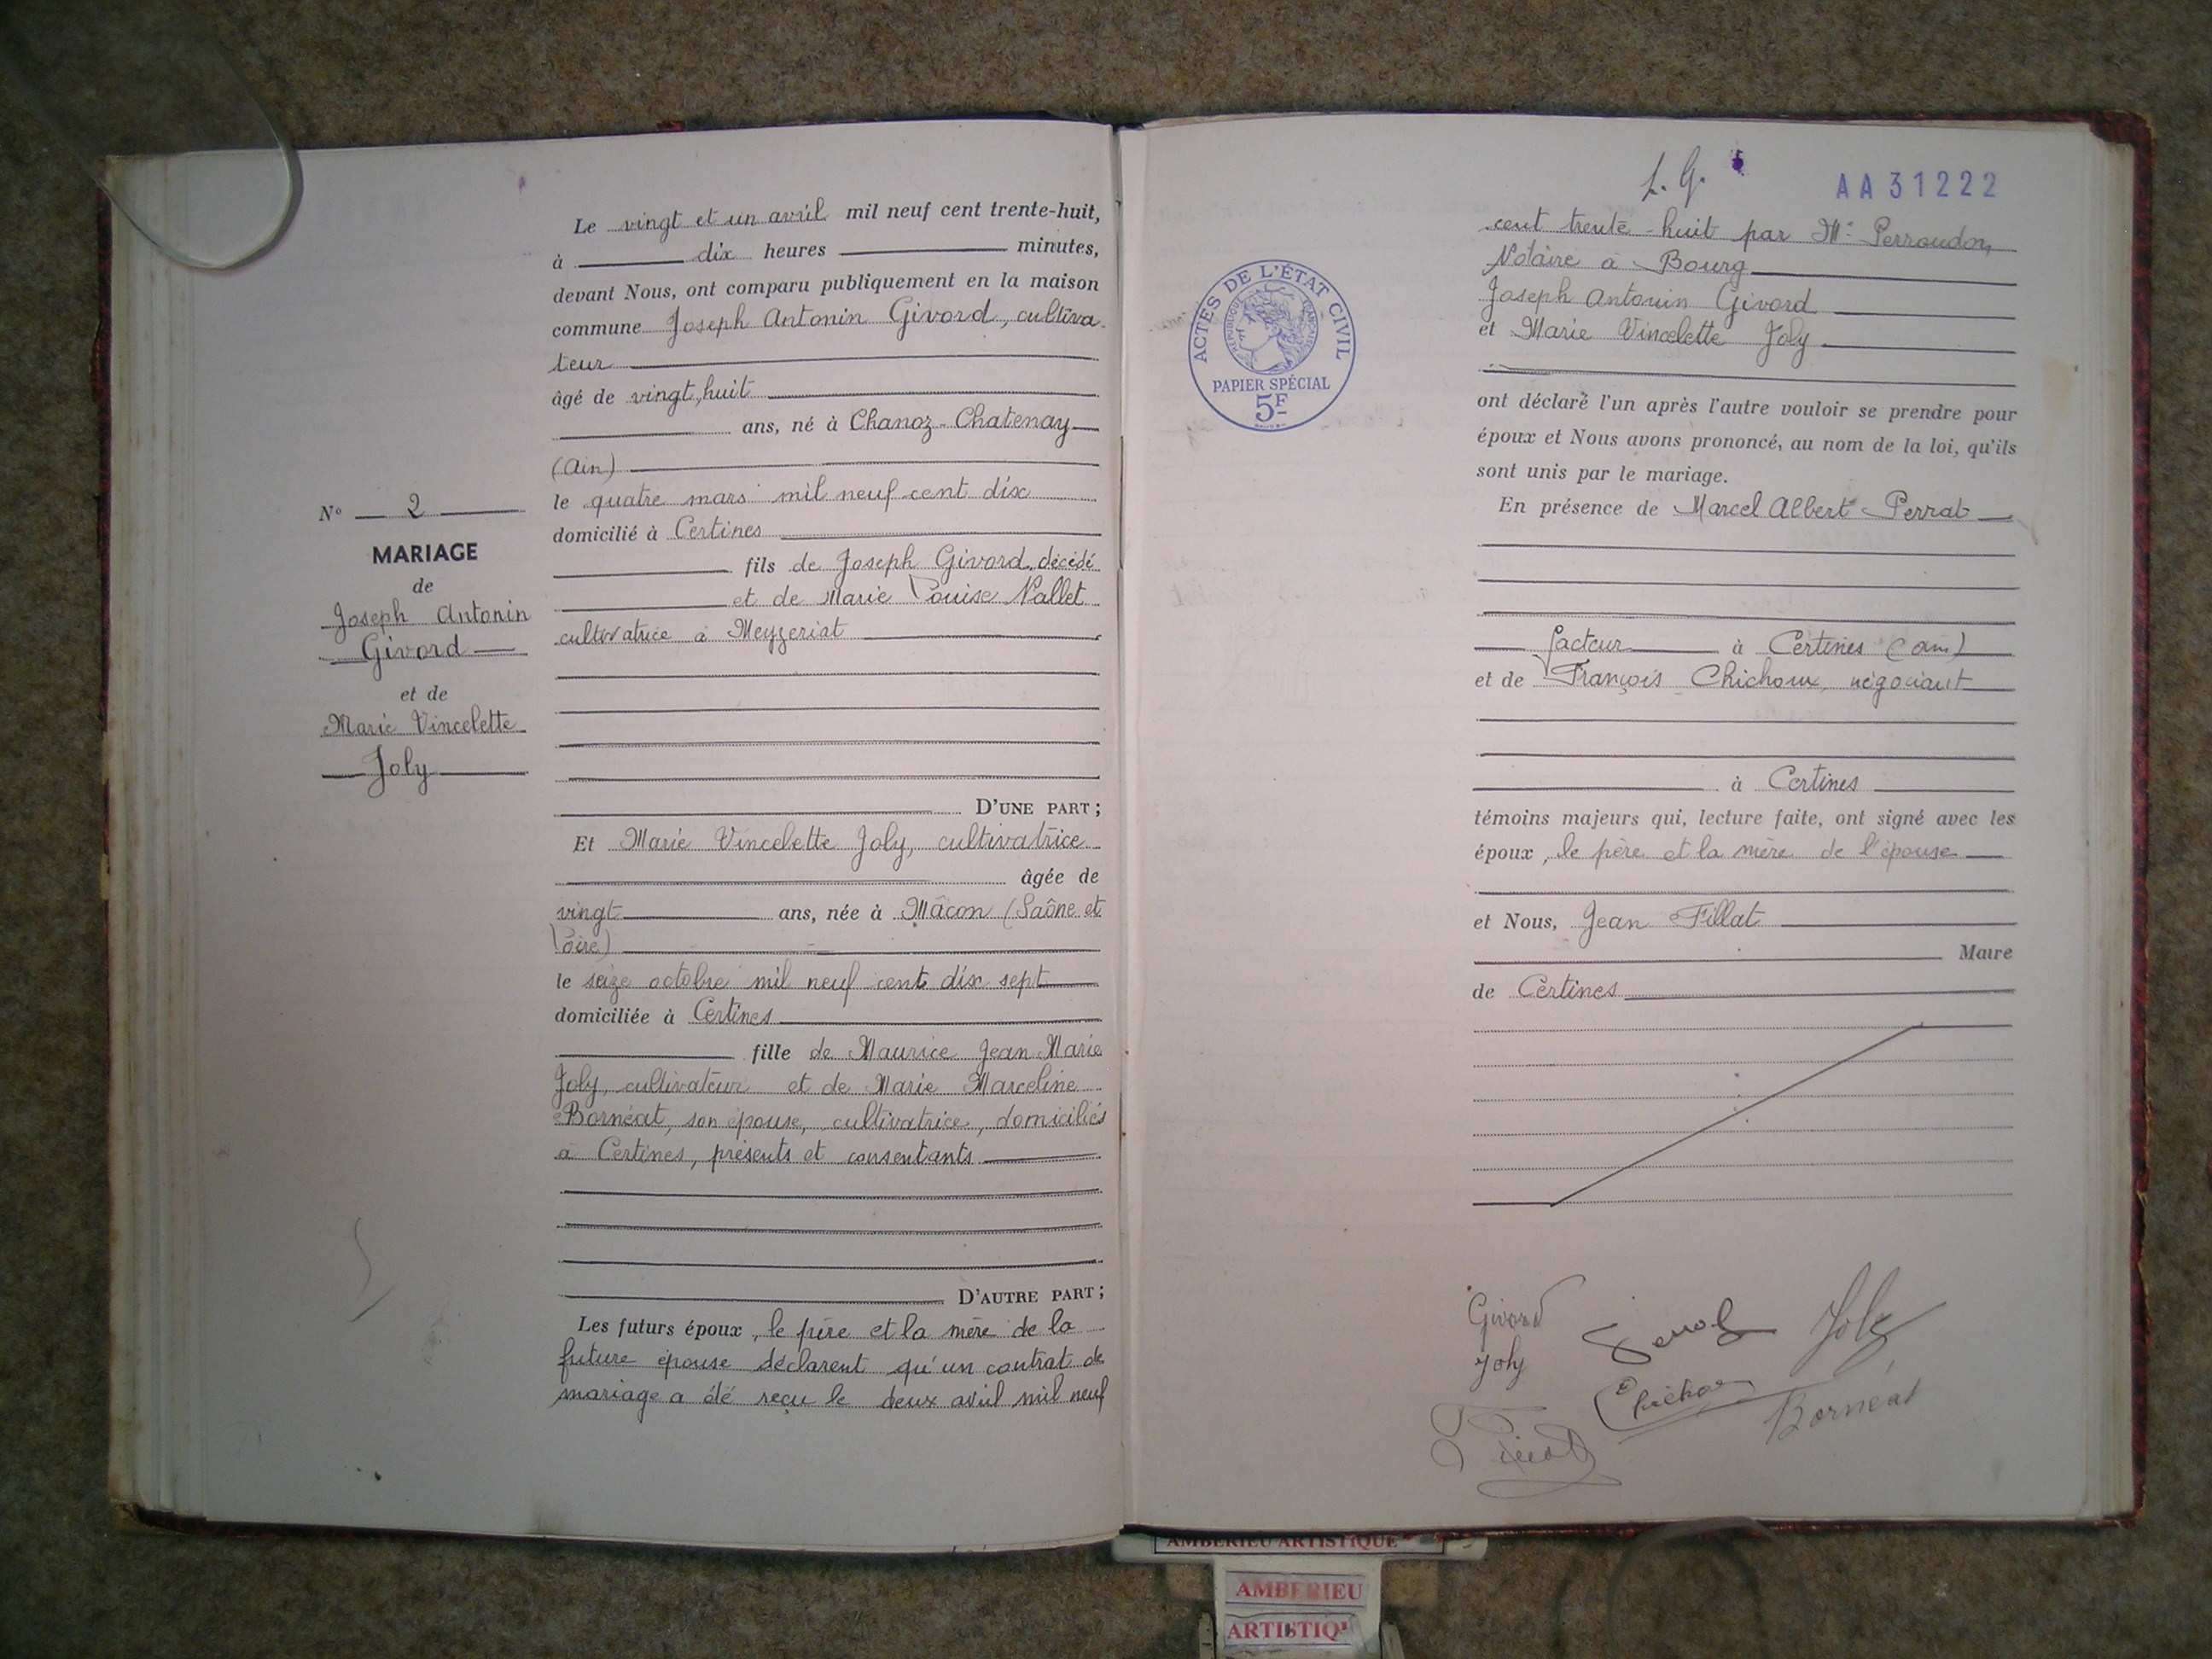 N° 2
MARIAGE
de
Joseph Antonin
Givord
et de
Marie Vincelette
Joly
Le vingt et un avril mil neuf cent trente-huit,
à dix heures minutes,
devant Nous, ont comparu publiquement en la maison
commune Joseph Antonin Givord, cultiva-
teur
âgé de vingt-huit
ans, né à Chanoz-Chatenay
(Ain)
le quatre mars mil neuf cent dix
domicilié à Certines
fils de Joseph Givord, décédé
et de Marie Louise Nallet
cultivatrice à Mezeriat
D'UNE PART ;
Et Marie Vincelette Joly, cultivatrice
âgée de
vingt ans, née à Mâcon (Saône et
Loire)
le seize octobre mil neuf cent dix sept
domiciliée à Certines
fille de Maurice Jean Marie
Joly, cultivateur et de Marie Marceline
Bornéat, son épouse, cultivatrice, domiciliés
à Certines, présents et consentants
D'AUTRE PART ;
Les futurs époux, le père et la mère de la
future épouse déclarent qu'un contrat de
mariage a été reçu le deux avril mil neuf
AA31222
cent trente-huit par Me Perroudon,
Notaire à Bourg
Joseph Antonin Givord
et Marie Vincelette Joly
ACTES DE L'ÉTAT CIVIL
RÉPUBLIQUE FRANÇAISE
PAPIER SPÉCIAL
5F
ont déclaré l'un après l'autre vouloir se prendre pour
époux et Nous avons prononcé, au nom de la loi, qu'ils
sont unis par le mariage.
En présence de Marcel Albert Perrat
facteur à Certines (Ain)
et de François Chichoux, négociant
à Certines
témoins majeurs qui, lecture faite, ont signé avec les
époux, le père et la mère de l'épouse
et Nous, Jean Fillat
Maire
de Certines
Givord
Joly
Joly
Bornéat
AMBERIEU ARTISTIQUE
AMBERIEU
ARTISTIQ